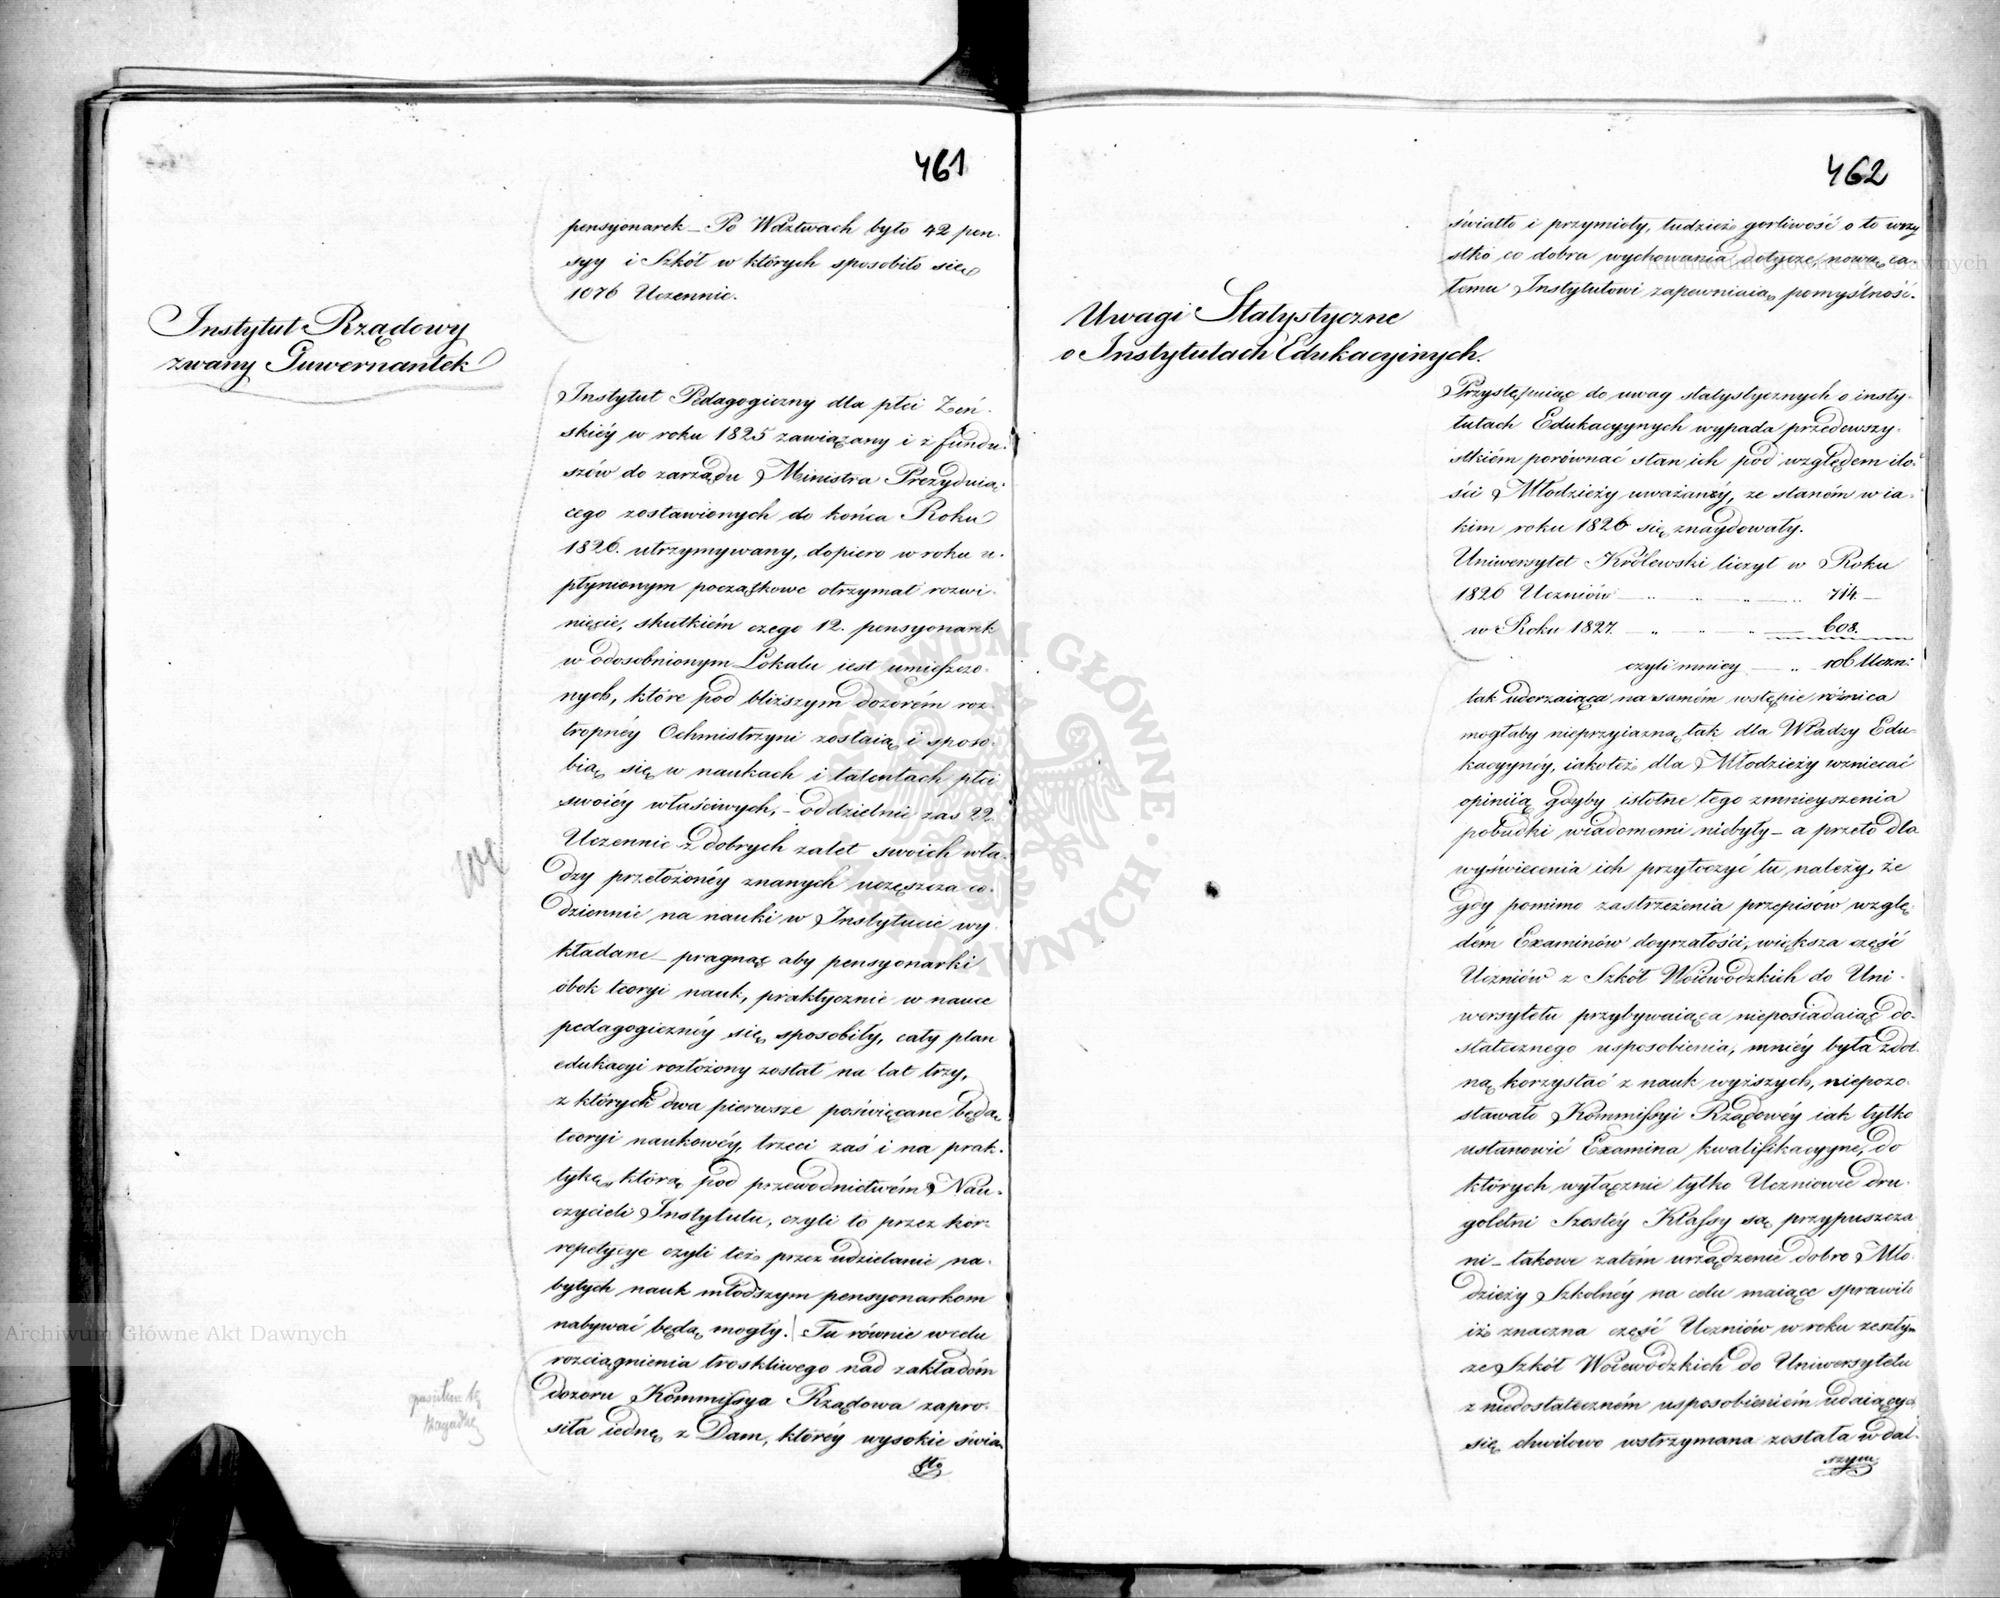 461
pensyonarek – Po Wdztwach było 42 pen-
syy i Szkół w których sposobiło się
1076 Uczennic.
Instytut Rządowy
zwany Guwernantek
Instytut Pedagogiczny dla płci Żeń-
skiéy w roku 1825 zawiązany i z fundu-
szów do zarządu Ministra Prezyduią-
cego zostawionych do końca Roku
1826. utrzymywany, dopiero w roku u-
płynionym początkowe otrzymał rozwi-
nięcie, skutkiém czego 12. pensyonarek
w odosobnionym Lokalu iest umieszczo-
nych, które pod bliższym dozorém roz-
tropnéy Ochmistrzyni zostaią i sposo-
bią się w naukach i talentach płci
swoiéy właściwych, – oddzielnie zas 22
Uczennic z dobrych zalet swoich wła-
dzy przełożonéy znanych uczęszcza co-
dziennie na nauki w Instytucie wy-
kładane – pragnąc aby pensyonarki
obok teoryi nauk, praktycznie w nauce
pedagogicznéy się sposobiły, cały plan
edukacyi rozłożony został na lat trzy,
z których dwa pierwsze poświęcane będą
teoryi naukowéy, trzeci zaś i na prak-
tykę, którą pod przewodnictwém Nau-
czycieli Instytutu, czyli to przez kor-
repetycye czyli też przez udzielanie na-
bytych nauk młodszym pensyonarkom
nabywać będą mogły. Tu równie w celu
rozciągnienia troskliwego nad zakładém
dozoru Kommissya Rządowa zapro-
siła iednę z Dam, któréy wysokie świa-
tło
462
światło i przymioty, tudzież gorliwość o to wszy
stko co dobra wychowania dotycze nową ca-
łemu Instytutowi zapewniaią pomyślność.
Uwagi Statystyczne
o Instytutach Edukacyinych.
Przystępuiąc do uwag statystycznych o insty-
tutach Edukacyynych wypada przedewszy-
stkiém porównać stan ich pod względem ilo-
ści Młodzieży uważanéy, ze staném w ia-
kim roku 1826 się znaydowały.
Uniwersytet Królewski liczył w Roku
1826 Uczniów — „ — „ — 714. —
w Roku 1827. — „ — „ — 608.
czyli mniey — „ 106 Uczn:
tak uderzaiąca na samém wstępie różnica
mogłaby nieprzyiazną tak dla Władzy Edu-
kacyynéy, iakoteż dla Młodzieży wzniecać
opiniią gdyby istotne tego zmnieyszenia
pobudki wiadomemi niebyły – a przeto dla
wyświecenia ich przytoczyć tu należy, że
gdy pomimo zastrzeżenia przepisów wzglę-
dém Examinów doyrzałości, większa część
Uczniów z Szkół Woiewódzkich do Uni-
wersytetu przybywaiąca nieposiadaiąc do-
statecznego usposobienia, mniéy była zdol-
ną korzystać z nauk wyższych, niepozo-
stawało Kommissyi Rządowéy iak tylko
ustanowić Examina kwalifikacyyne, do
których wyłącznie tylko Uczniowie dru-
goletni Szostéy Klassy są przypuszcza
ni – takowe zatém urządzenie dobro Mło-
dzieży Szkolnéy na celu maiące sprawiło
iż znaczna część Uczniów w roku zeszłym
ze Szkół Woiewódzkich do Uniwersytetu
z niedostateczném usposobieniém udaiących
się chwilowo wstrzymana została w dal-
szym
Archiwum Główne Akt Dawnych
Archiwum Główne Akt Dawnych
ARCHIWUM GŁÓWNE AKT DAWNYCH